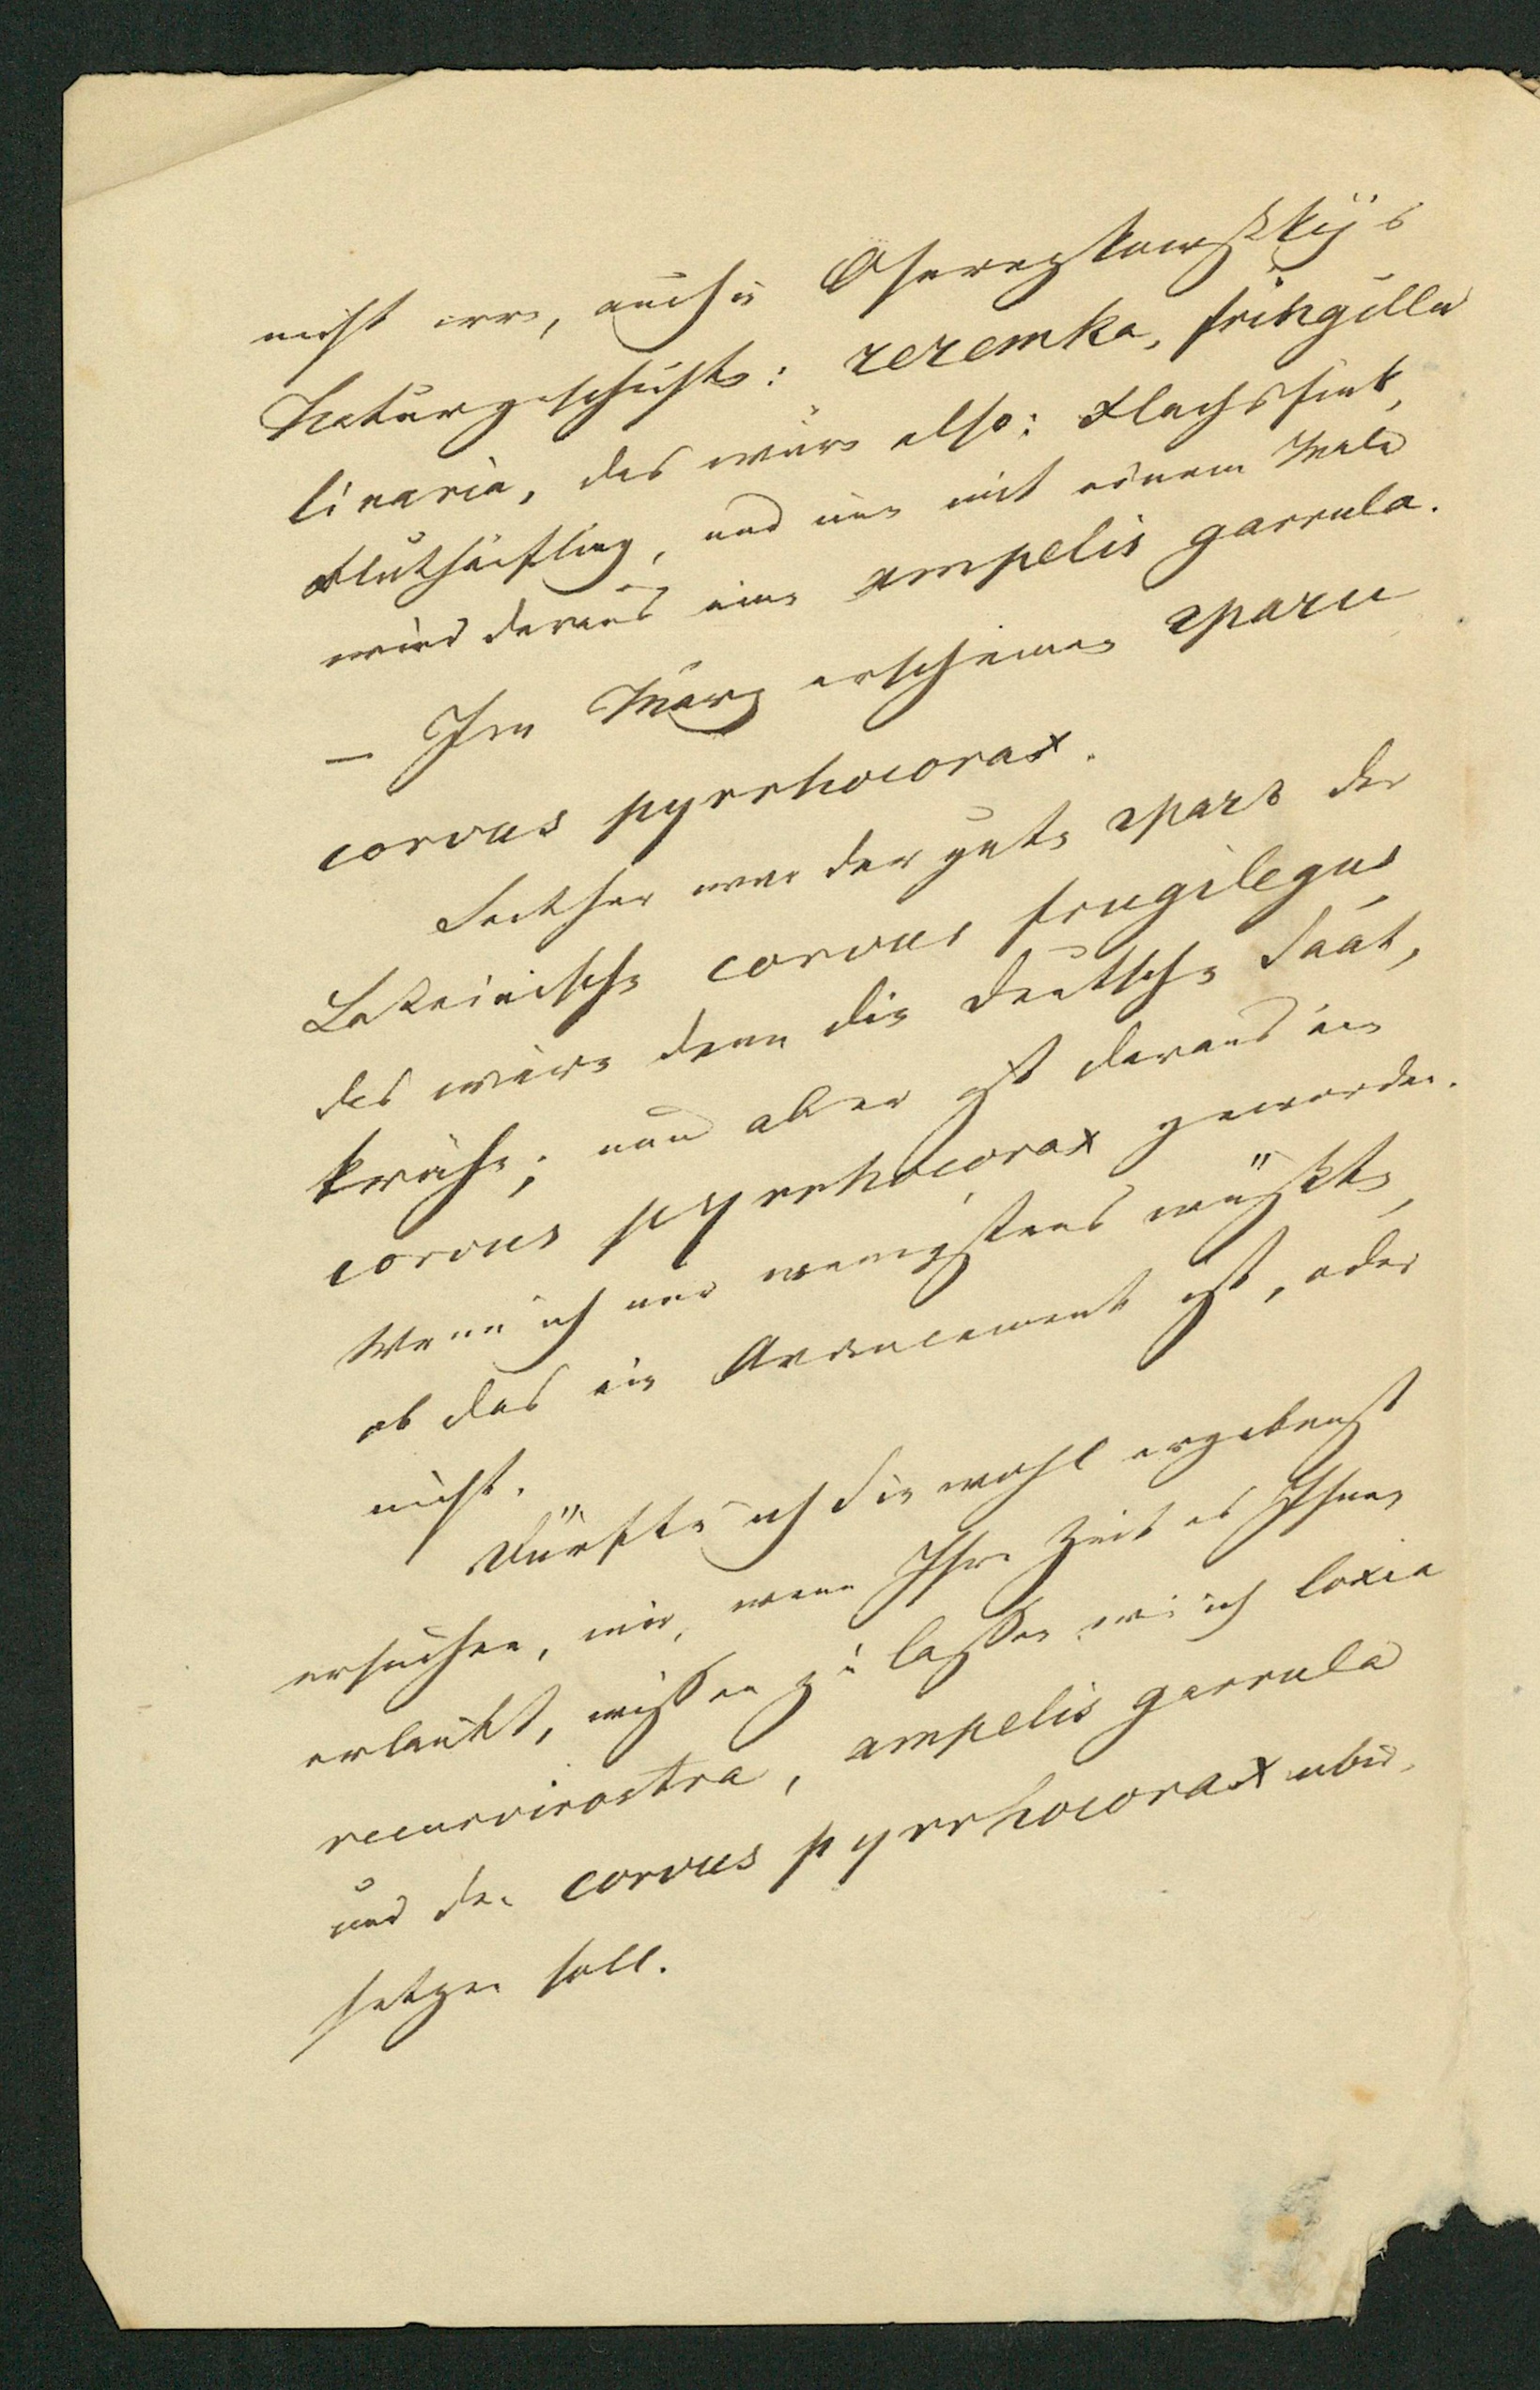 nicht irre, auch in Oserezkowskij's
Naturgeschichte: чечетка, fringilla
linaria, das wäre also: Flachsfink,
Bluthänfling, und nun mit einem Male
wird daraus eine ampelis garrula.
— Im März erscheinen грачи
corvus pyrrhocorax.
Seither war der gute грачъ der
Lateinische corvus frugilegus,
das wäre denn die deutsche Saat,
krähe; nun aber ist daraus ein
corvus pyrrhocorax geworden.
Wenn ich nur wenigstens wüßte,
ob das ein Avancement ist, oder
nicht.
Dürfte ich Sie wohl ergebenst
ersuchen, mir, wenn Ihre Zeit es Ihnen
erlaubt, wissen zu lassen wie ich loxia
recurvirostra, ampelis garrula
und den corvus pyrrhocorax über,
setzen soll.